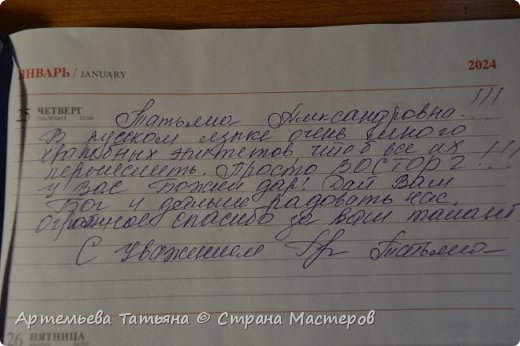 ЯНВАРЬ / JANUARY 2024
25 ЧЕТВЕРГ
Татьяна Александровна. !!!
В русском языке очень много
хвалебных эпитетов чтоб все их
перечислить. Просто ВОСТОРГ!!!
У Вас Божий дар! Дай Вам
Бог и дальше радовать нас.
Огромное спасибо за Ваш талант
С уважением Татьяна
Артемьева Татьяна © Страна Мастеров
26 ПЯТНИЦА